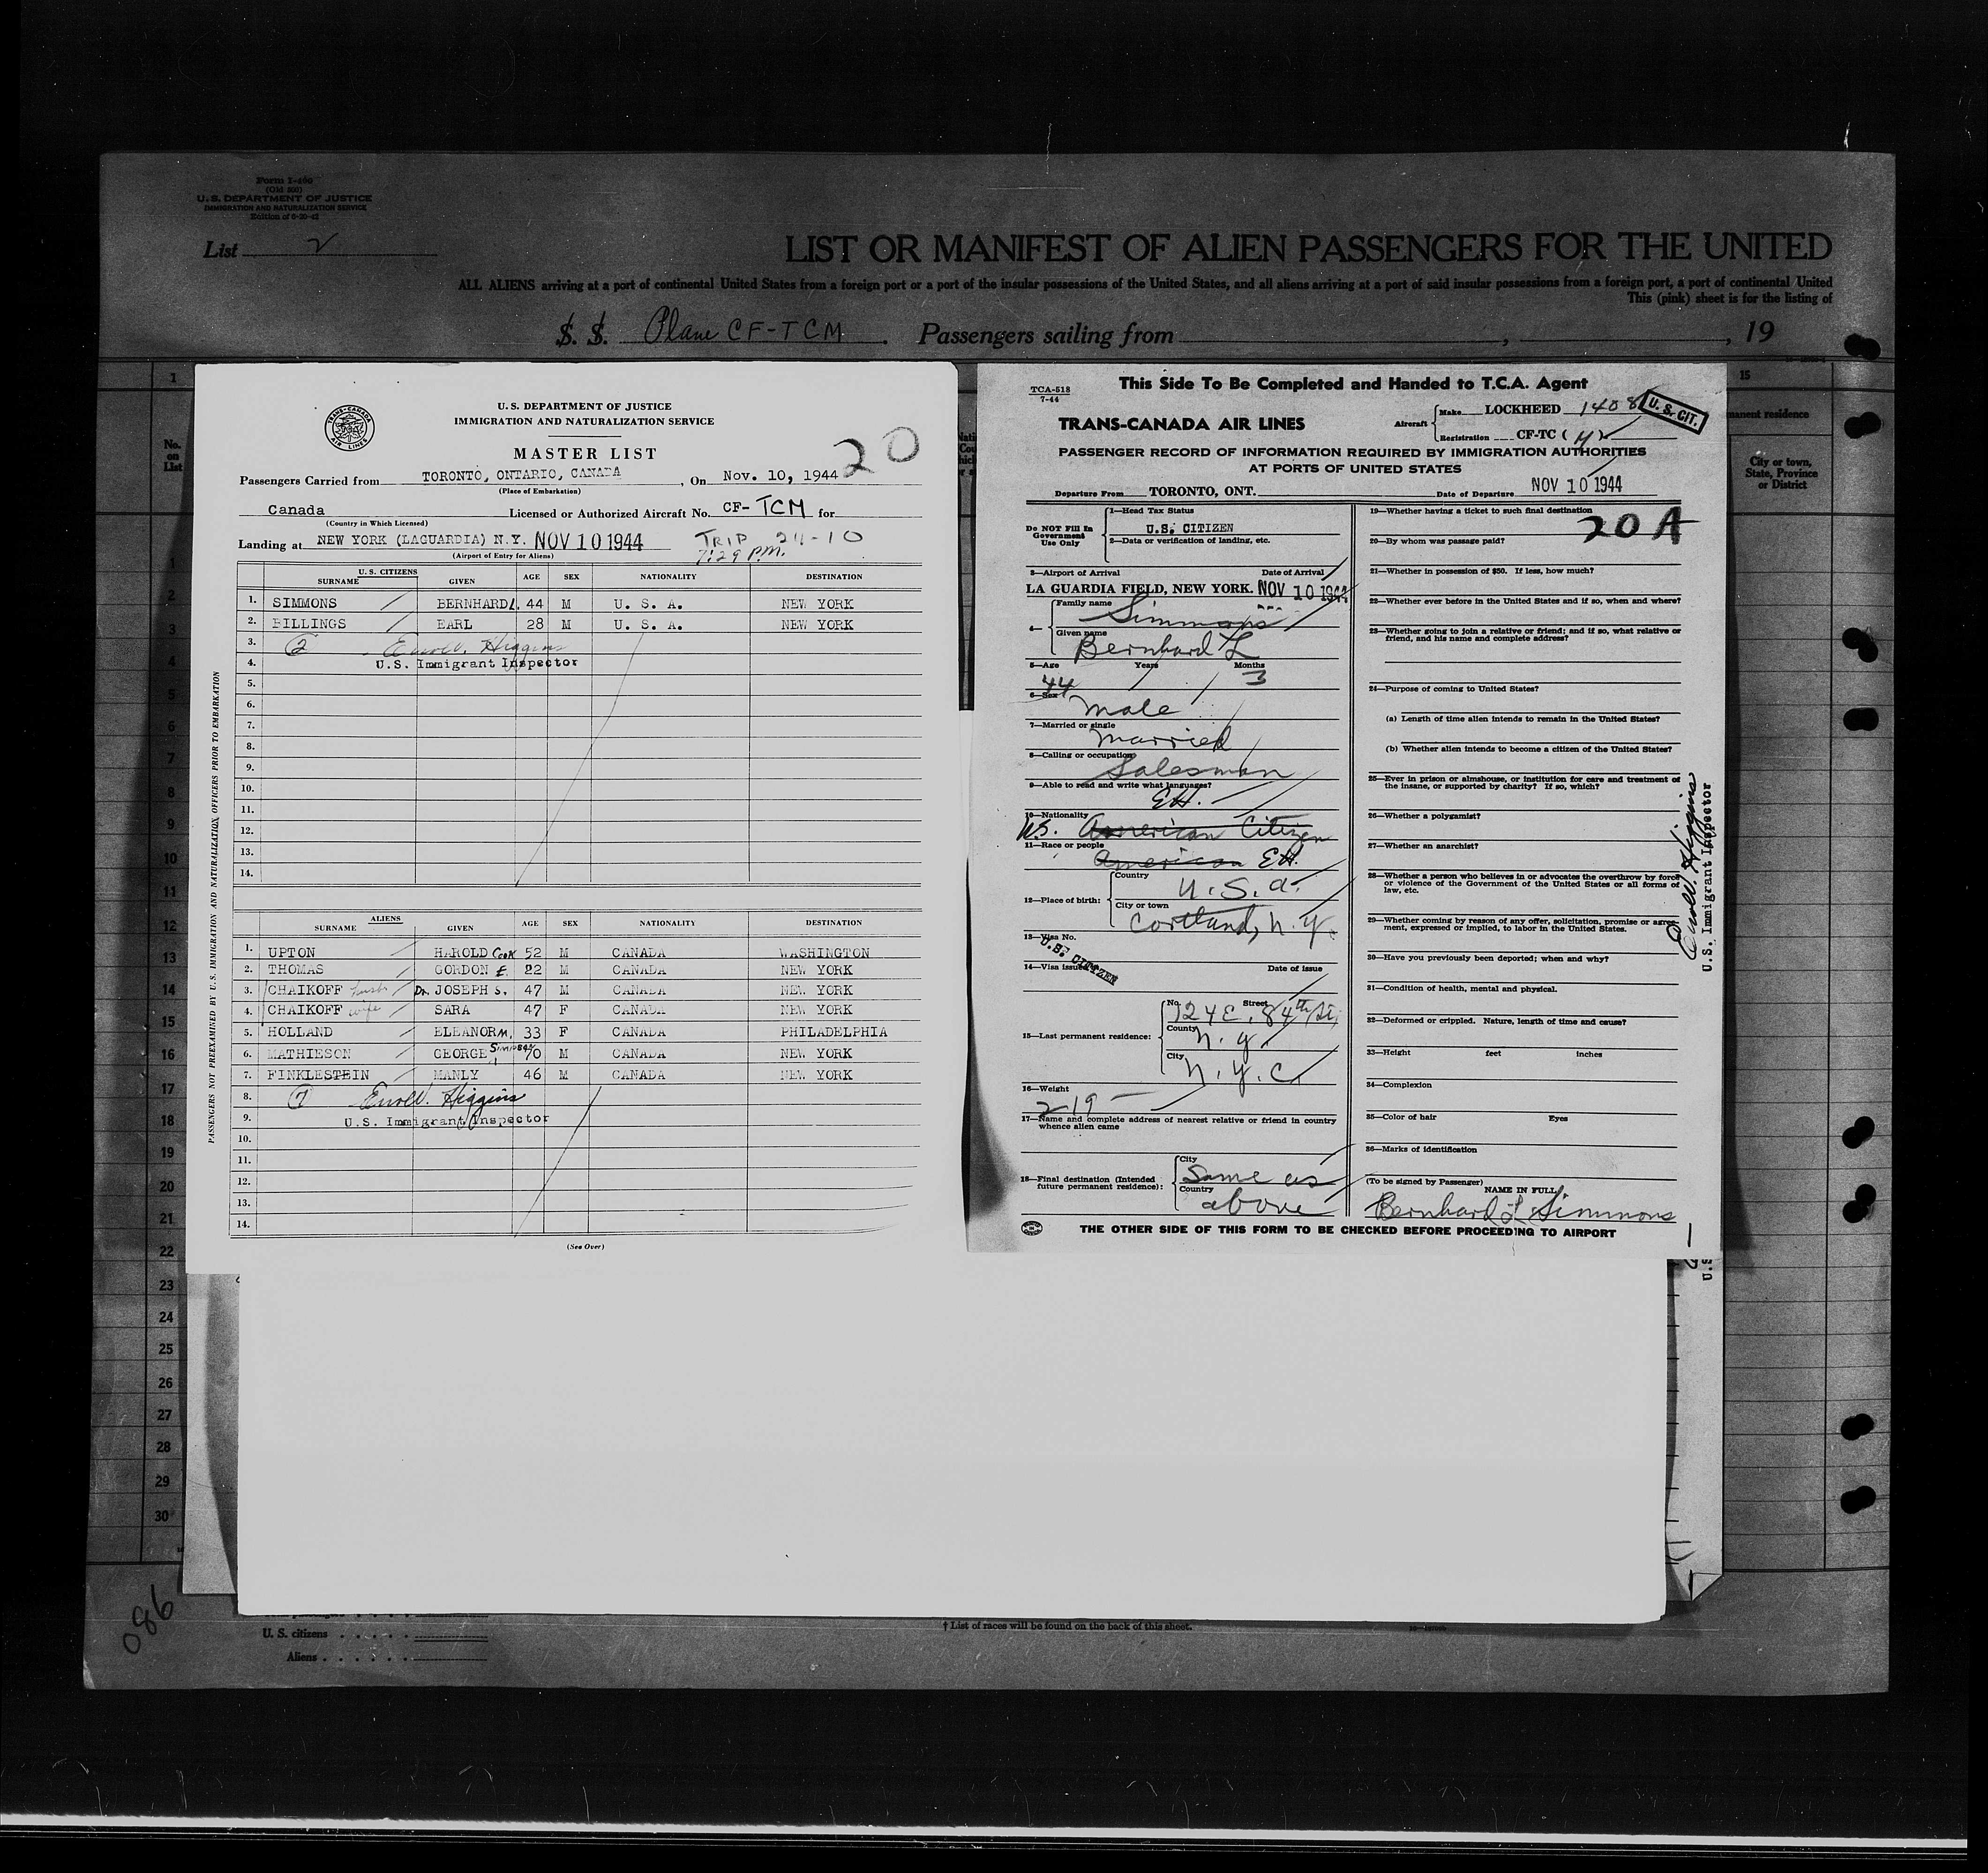 Form I-460
(Old 500)
U. S. DEPARTMENT OF JUSTICE
IMMIGRATION AND NATURALIZATION SERVICE
Edition of 6-20-42
List 2
LIST OR MANIFEST OF ALIEN PASSENGERS FOR THE UNITED
ALL ALIENS arriving at a port of continental United States from a foreign port or a port of the insular possessions of the United States, and all aliens arriving at a port of said insular possessions from a foreign port, a port of continental United
This (pink) sheet is for the listing of
S. S. Plane CF-TCM. Passengers sailing from , , 19
No.
on
List
15
manent residence
City or town,
State, Province
or District
TRANS-CANADA
AIR LINES
U. S. DEPARTMENT OF JUSTICE
IMMIGRATION AND NATURALIZATION SERVICE
MASTER LIST
20
Passengers Carried from TORONTO, ONTARIO, CANADA, On Nov. 10, 1944
(Place of Embarkation)
Canada Licensed or Authorized Aircraft No. CF-TCM for
(Country in Which Licensed)
Landing at NEW YORK (LAGUARDIA) N.Y. NOV 10 1944 TRIP 24-10
(Airport of Entry for Aliens) 7:29 P.M.
U. S. CITIZENS
SURNAME GIVEN AGE SEX NATIONALITY DESTINATION
1. SIMMONS BERNHARD L. 44 M U. S. A. NEW YORK
2. BILLINGS EARL 28 M U. S. A. NEW YORK
3. 2 Higgins
4. U.S. Immigrant Inspector
5.
6.
7.
8.
9.
10.
11.
12.
13.
14.
ALIENS
SURNAME GIVEN AGE SEX NATIONALITY DESTINATION
1. UPTON HAROLD Cook 52 M CANADA WASHINGTON
2. THOMAS GORDON E. 22 M CANADA NEW YORK
3. CHAIKOFF husb Dr. JOSEPH S. 47 M CANADA NEW YORK
4. CHAIKOFF wife SARA 47 F CANADA NEW YORK
5. HOLLAND ELEANOR M. 33 F CANADA PHILADELPHIA
6. MATHIESON GEORGE Simpson 70 M CANADA NEW YORK
7. FINKLESTEIN MANLY 46 M CANADA NEW YORK
8. 7 Higgins
9. U.S. Immigrant Inspector
10.
11.
12.
13.
14.
(See Over)
PASSENGERS NOT PREEXAMINED BY U. S. IMMIGRATION AND NATURALIZATION OFFICERS PRIOR TO EMBARKATION
TCA-518
7-44
This Side To Be Completed and Handed to T.C.A. Agent
TRANS-CANADA AIR LINES
Aircraft
Make LOCKHEED 1408
Registration CF-TC (M)
U. S. CIT.
PASSENGER RECORD OF INFORMATION REQUIRED BY IMMIGRATION AUTHORITIES
AT PORTS OF UNITED STATES
Departure From TORONTO, ONT. Date of Departure NOV 10 1944
Do NOT Fill In
Government
Use Only
1—Head Tax Status
U.S. CITIZEN
2—Data or verification of landing, etc.
3—Airport of Arrival Date of Arrival
LA GUARDIA FIELD, NEW YORK. NOV 10 1944
4— Family name
Simmons
Given name
Bernhard L
5—Age Years Months
44 3
6—Sex
Male
7—Married or single
Married
8—Calling or occupation
Salesman
9—Able to read and write what languages?
EH.
10—Nationality
U.S. American Citizen
11—Race or people
American EH.
12—Place of birth:
Country
U.S.A.
City or town
Cortland, N.Y.
13—Visa No.
U.S. CITIZEN
14—Visa issued Date of issue
15—Last permanent residence:
No. Street
124 E. 84th St.
County
N.Y.
City
N.Y.C.
16—Weight
219
17—Name and complete address of nearest relative or friend in country
whence alien came
18—Final destination (Intended
future permanent residence):
City
Same as
Country
above
19—Whether having a ticket to such final destination
20 A
20—By whom was passage paid?
21—Whether in possession of $50. If less, how much?
22—Whether ever before in the United States and if so, when and where?
23—Whether going to join a relative or friend; and if so, what relative or
friend, and his name and complete address?
24—Purpose of coming to United States?
(a) Length of time alien intends to remain in the United States?
(b) Whether alien intends to become a citizen of the United States?
25—Ever in prison or almshouse, or institution for care and treatment of
the insane, or supported by charity? If so, which?
26—Whether a polygamist?
27—Whether an anarchist?
28—Whether a person who believes in or advocates the overthrow by force
or violence of the Government of the United States or all forms of
law, etc.
29—Whether coming by reason of any offer, solicitation, promise or agree-
ment, expressed or implied, to labor in the United States.
30—Have you previously been deported; when and why?
31—Condition of health, mental and physical.
32—Deformed or crippled. Nature, length of time and cause?
33—Height feet inches
34—Complexion
35—Color of hair Eyes
36—Marks of identification
(To be signed by Passenger)
NAME IN FULL
Bernhard L Simmons
THE OTHER SIDE OF THIS FORM TO BE CHECKED BEFORE PROCEEDING TO AIRPORT
Higgins
U.S. Immigrant Inspector
U.S.
1
1
2
3
4
5
6
7
8
9
10
11
12
13
14
15
16
17
18
19
20
21
22
23
24
25
26
27
28
29
30
086
U. S. citizens
Aliens
† List of races will be found on the back of this sheet.